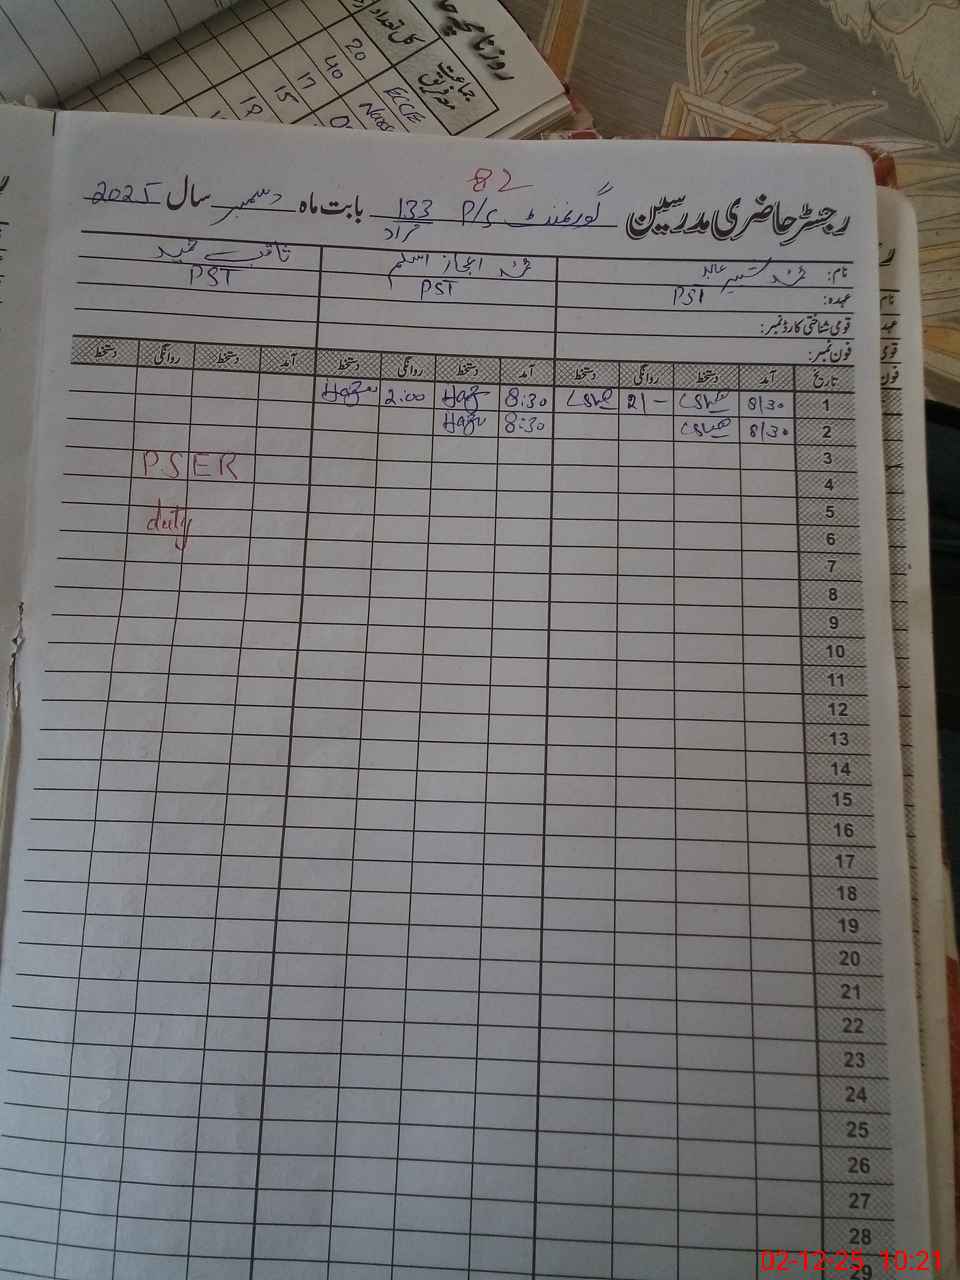 روزنامچہ
کل تعداد
جماعت
متفریق
20
40
17
15
18
ECCE
82
رجسٹر حاضری مدرسین گورنمنٹ P/S 133 مراد بابت ماہ دسمبر سال 2025
نام: محمد اعجاز اسلم
عہدہ: PST PST PST
قومی شناختی کارڈ نمبر:
فون نمبر:
تاریخ آمد دستخط روانگی دستخط آمد دستخط روانگی دستخط آمد دستخط روانگی دستخط
1 8/30 2/- 8:30 2:00
2 8/30 8:30
3
PSER
4
5
duty
6
7
8
9
10
11
12
13
14
15
16
17
18
19
20
21
22
23
24
25
26
27
28
29
02-12-25 10:21